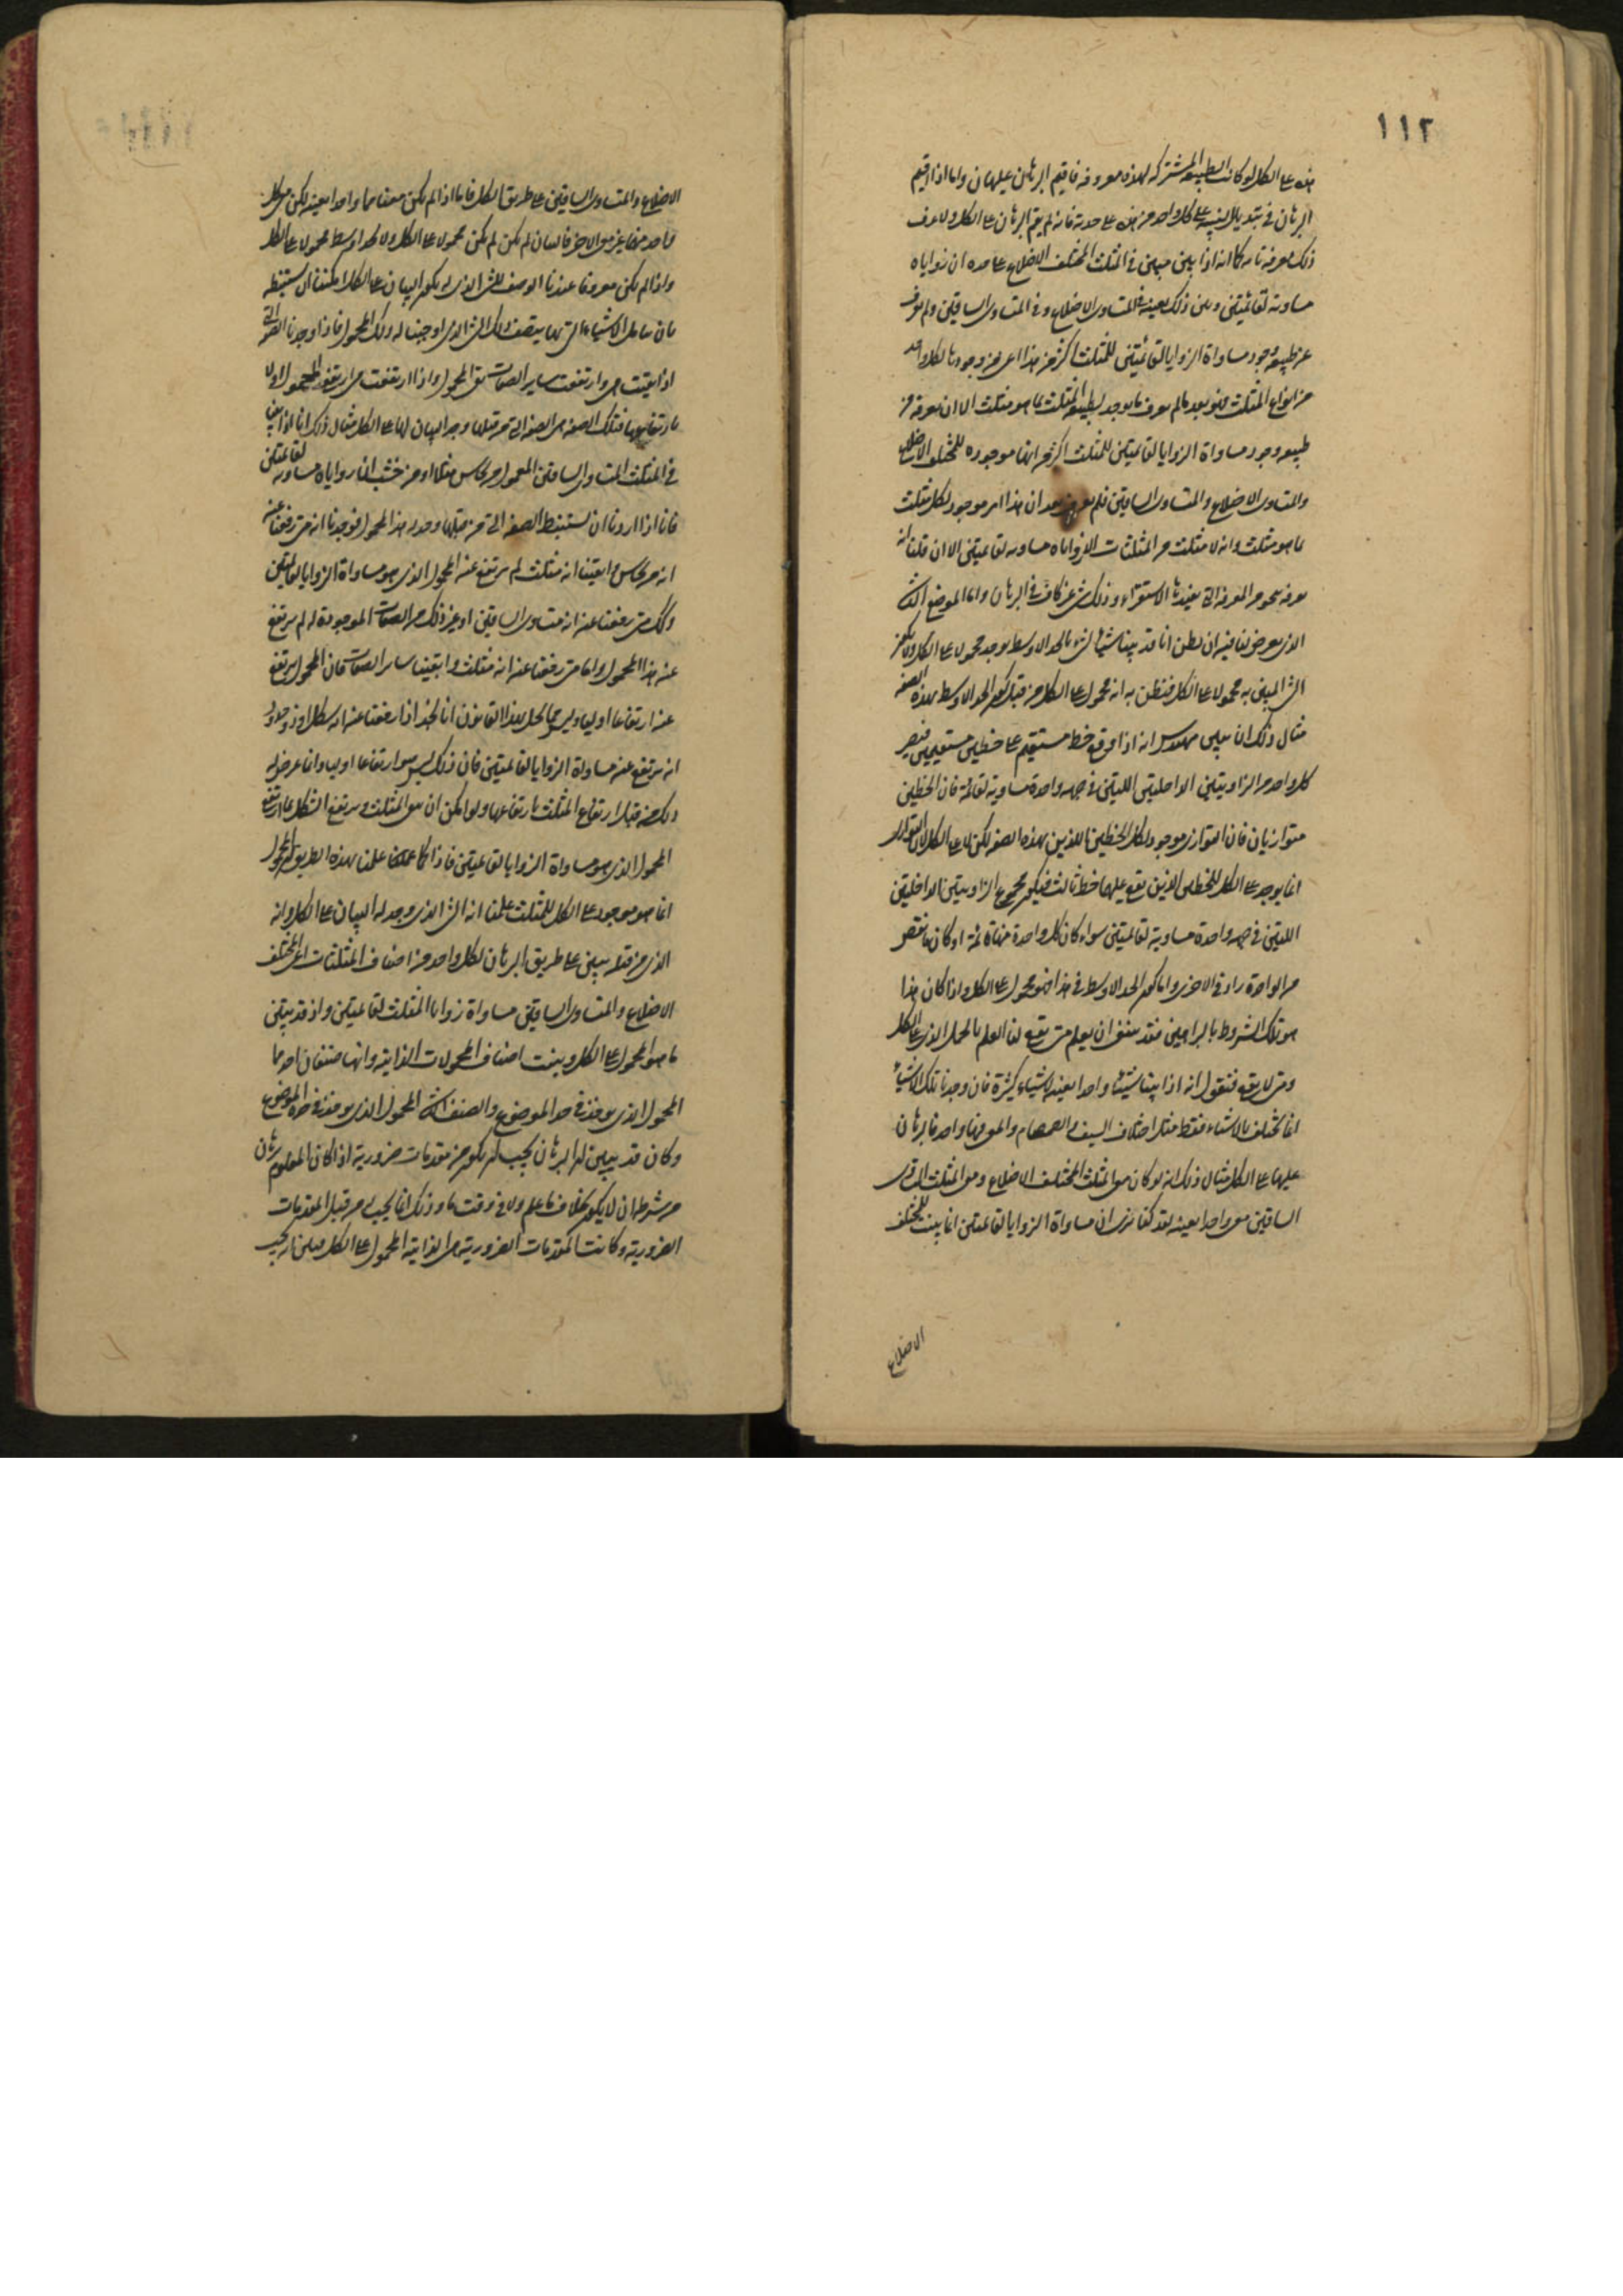 ١١٢
هذه على الكل لو كانت الطبيعة المشتركة لهذه معروفة فاقيم البرهان عليها من واما اذا اقيم
البرهان في تبديل النسبة على كل واحد من هذه على حدته فانه لم يقم البرهان على الكل ولا عرف
ذلك معرفة تامة كما انه اذا بين مبين في المثلث المختلف الاضلاع على حده ان زواياه
مساوية لقائمتين وبين ذلك بعينه في المتساوى الاضلاع وفي المتساوى الساقين ولم يعرف
عن طبيعة وجود مساواة الزوايا لقائمتين للمثلث اكثر من هذا اعنى من وجودها لكل واحد
من انواع المثلث فهو بعد لم يعرف ما يوجد لطبيعة المثلث بما هو مثلث الا ان معرفة من
طبيعة وجود مساواة الزوايا لقائمتين للمثلث اكثر من انها موجودة للمختلف الاضلاع
والمتساوى الاضلاع والمتساوى الساقين فلم يعرف بعد ان هذا امر موجود لكل مثلث
بما هو مثلث وانه لا مثلث من المثلثات الا زواياه مساوية لقائمتين الا ان قلنا انه
معرفة بنحو من المعرفة التي يفيدها الاستقراء وذلك شى غير كاف في البرهان واما الموضع الثالث
الذى يعرض لنا فيه ان نظن انا قد بينا شيئا لشئ بالحد الاوسط يوجد محمولا على الكل ولا يكون
الشئ المبين به محمولا على الكل فنظن به انه محمول على الكل من قبل كون الحد الاوسط بهذه الصفة
مثال ذلك ان يبين مهندس انه اذا وقع خط مستقيم على خطين مستقيمين فيصير
كل واحد من الزاويتين الداخليتين اللتين في جهة واحدة مساوية لقائمة فان الخطين
متوازيان فان التوازى موجود لكل الخطين اللذين بهذه الصفة لكن لا على الكل لان التوازى
انما يوجد على الكل للخطين الذين يقع عليهما خط ثالث فيكون مجموع الزاويتين الداخلتين
اللتين في جهة واحدة مساوية لقائمتين سواء كان كل واحدة منها قائمة او كان ما نقص
من الواحدة زاد في الاخرى واما كون الحد الاوسط في هذا فهو محمول على الكل واذا كان هذا
هو تلك الشروط بالبراهين فقد ينبغى ان يعلم متى يقع لنا العلم بالحمل الذى على الكل
ومتى لا يقع فنقول انه اذا بينا شيئا واحدا بعينه لاشياء كثيرة فان وجدنا تلك الاشياء
انما تختلف بالاسماء فقط مثل اختلاف السيف والصمصام والمعنى فيها واحد فالبرهان
عليها على الكل مثال ذلك انه لو كان معنى المثلث المختلف الاضلاع ومعنى المثلث المتساوى
الساقين معنى واحدا بعينه لقد كنا نرى ان مساواة الزوايا لقائمتين انما بينت للمختلف
الاضلاع
الاضلاع والمتساوى الساقين على طريق الكل فاما اذا لم يكن معناهما واحدا بعينه لكن معنى كل
واحد منها غير معنى الاخر فالبيان لم يكن لم يكن محمولا على الكل ولا الحد الاوسط محمولا على الكل
واذا لم يكن معروفا عندنا الوصف للشئ الذى له يكون البيان على الكل امكننا ان نستنبطه
بان نتامل الاشياء التي بها يتصف ذلك الشئ الذى اوجبنا له ذلك المحمول فاذا وجدنا الصفة التي
اذا بقيت هى وارتفعت ساير الصفات بقى المحمول واذا ارتفعت هى ارتفع المحمول اولا
بارتفاعها فتلك الصفة هى الصفة التي من قبلها وجد البيان لها على الكل مثال ذلك انا اذا بينا
في المثلث المتساوى الساقين المعمول من نحاس مثلا او من خشب ان زواياه مساوية لقائمتين
فانا اذا اردنا ان نستنبط الصفة التي من قبلها وجد له هذا المحمول فوجدنا انه متى رفعنا عنه
انه من نحاس وابقينا انه مثلث لم يرتفع عنه المحمول الذى هو مساواة الزوايا لقائمتين
وكذلك متى رفعنا عنه انه متساوى الساقين او غير ذلك من الصفات الموجودة له لم يرتفع
عنه هذا المحمول واما متى رفعنا عنه انه مثلث وابقينا ساير الصفات فان المحمول يرتفع
عنه ارتفاعا اوليا وليس مما يخل بهذا القانون انا نجد اذا رفعنا عنه انه شكل او ذو حدود
انه يرتفع عنه مساواة الزوايا لقائمتين فان ذلك ليس هو ارتفاعا اوليا وانما عرض له
ذلك من قبل ارتفاع المثلث بارتفاعها ولو امكن ان يبقى المثلث ويرتفع الشكل لما ارتفع
المحمول الذى هو مساواة الزوايا لقائمتين فاذا كنا علمنا بهذه الطريق ان المحمول
انما هو موجود على الكل للمثلث علمنا انه الشئ الذى وجد له البيان على الكل وانه
الذى من قبله يبين على طريق البرهان لكل واحد من اصناف المثلثات اعنى المختلف
الاضلاع والمتساوى الساقين مساواة زوايا المثلث لقائمتين واذ قد تبين
ما هو المحمول على الكل وبينت اصناف المحمولات الذاتية وانها صنفان احدهما
المحمول الذى يوخذ في حد الموضوع والصنف الثانى المحمول الذى يوخذ في حده الموضوع
وكان قد يتبين ان البرهان يجب ان يكون من مقدمات ضرورية اذ كان المعلوم ببرهان
من شرطه ان لا يكون بخلاف ما علم ولا في وقت ما وذلك انما يجب له من قبل المقدمات
الضرورية وكانت المقدمات الضرورية هى الذاتية المحمولة على الكل فبين انه يجب